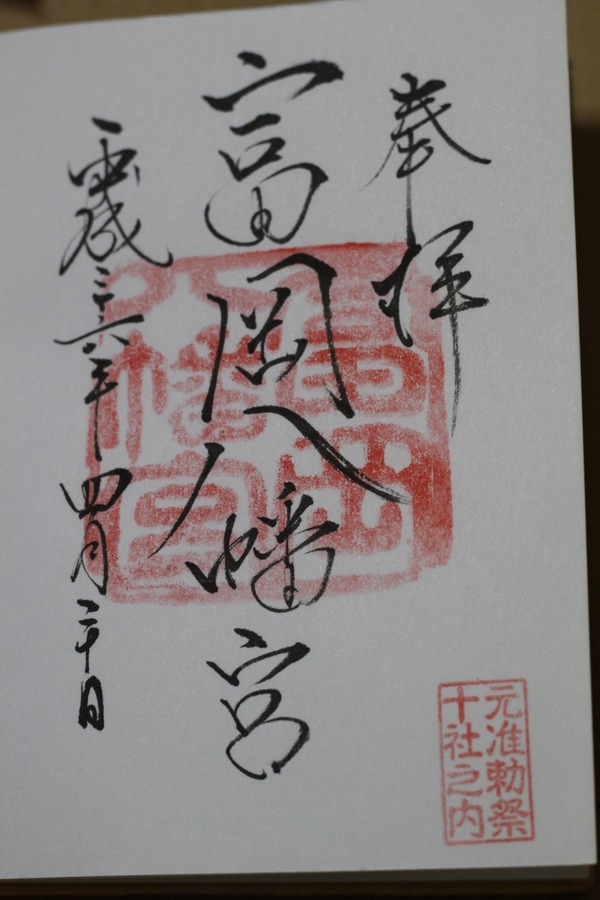 奉拝
富岡八幡宮
平成二十六年四月二十日
富岡八幡宮
元准勅祭
十社之内